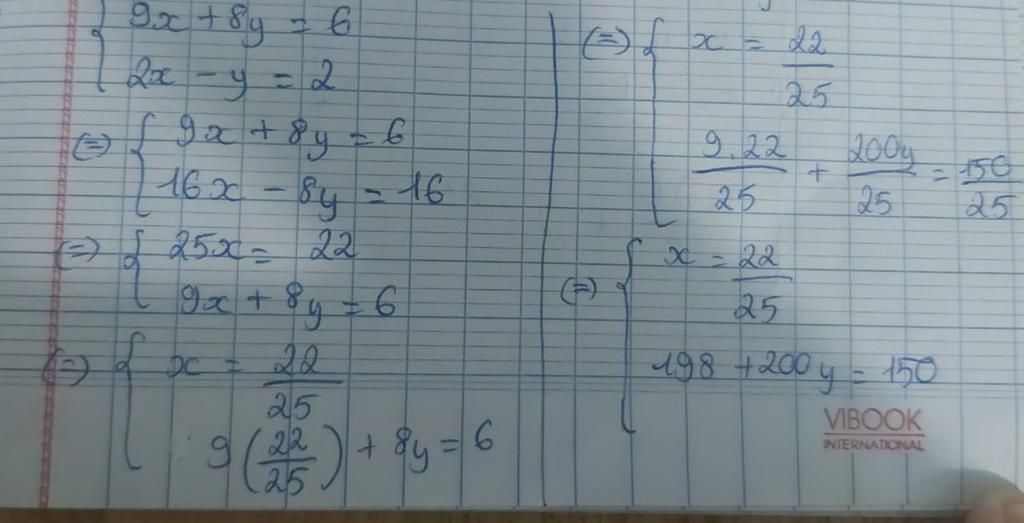 { 9x + 8y = 6
2x - y = 2
(=) { 9x + 8y = 6
16x - 8y = 16
(=) { 25x = 22
9x + 8y = 6
(=) { x = 22/25
9(22/25) + 8y = 6
(=) { x = 22/25
9.22/25 + 200y/25 = 150/25
(=) { x = 22/25
198 + 200y = 150
VIBOOK
INTERNATIONAL